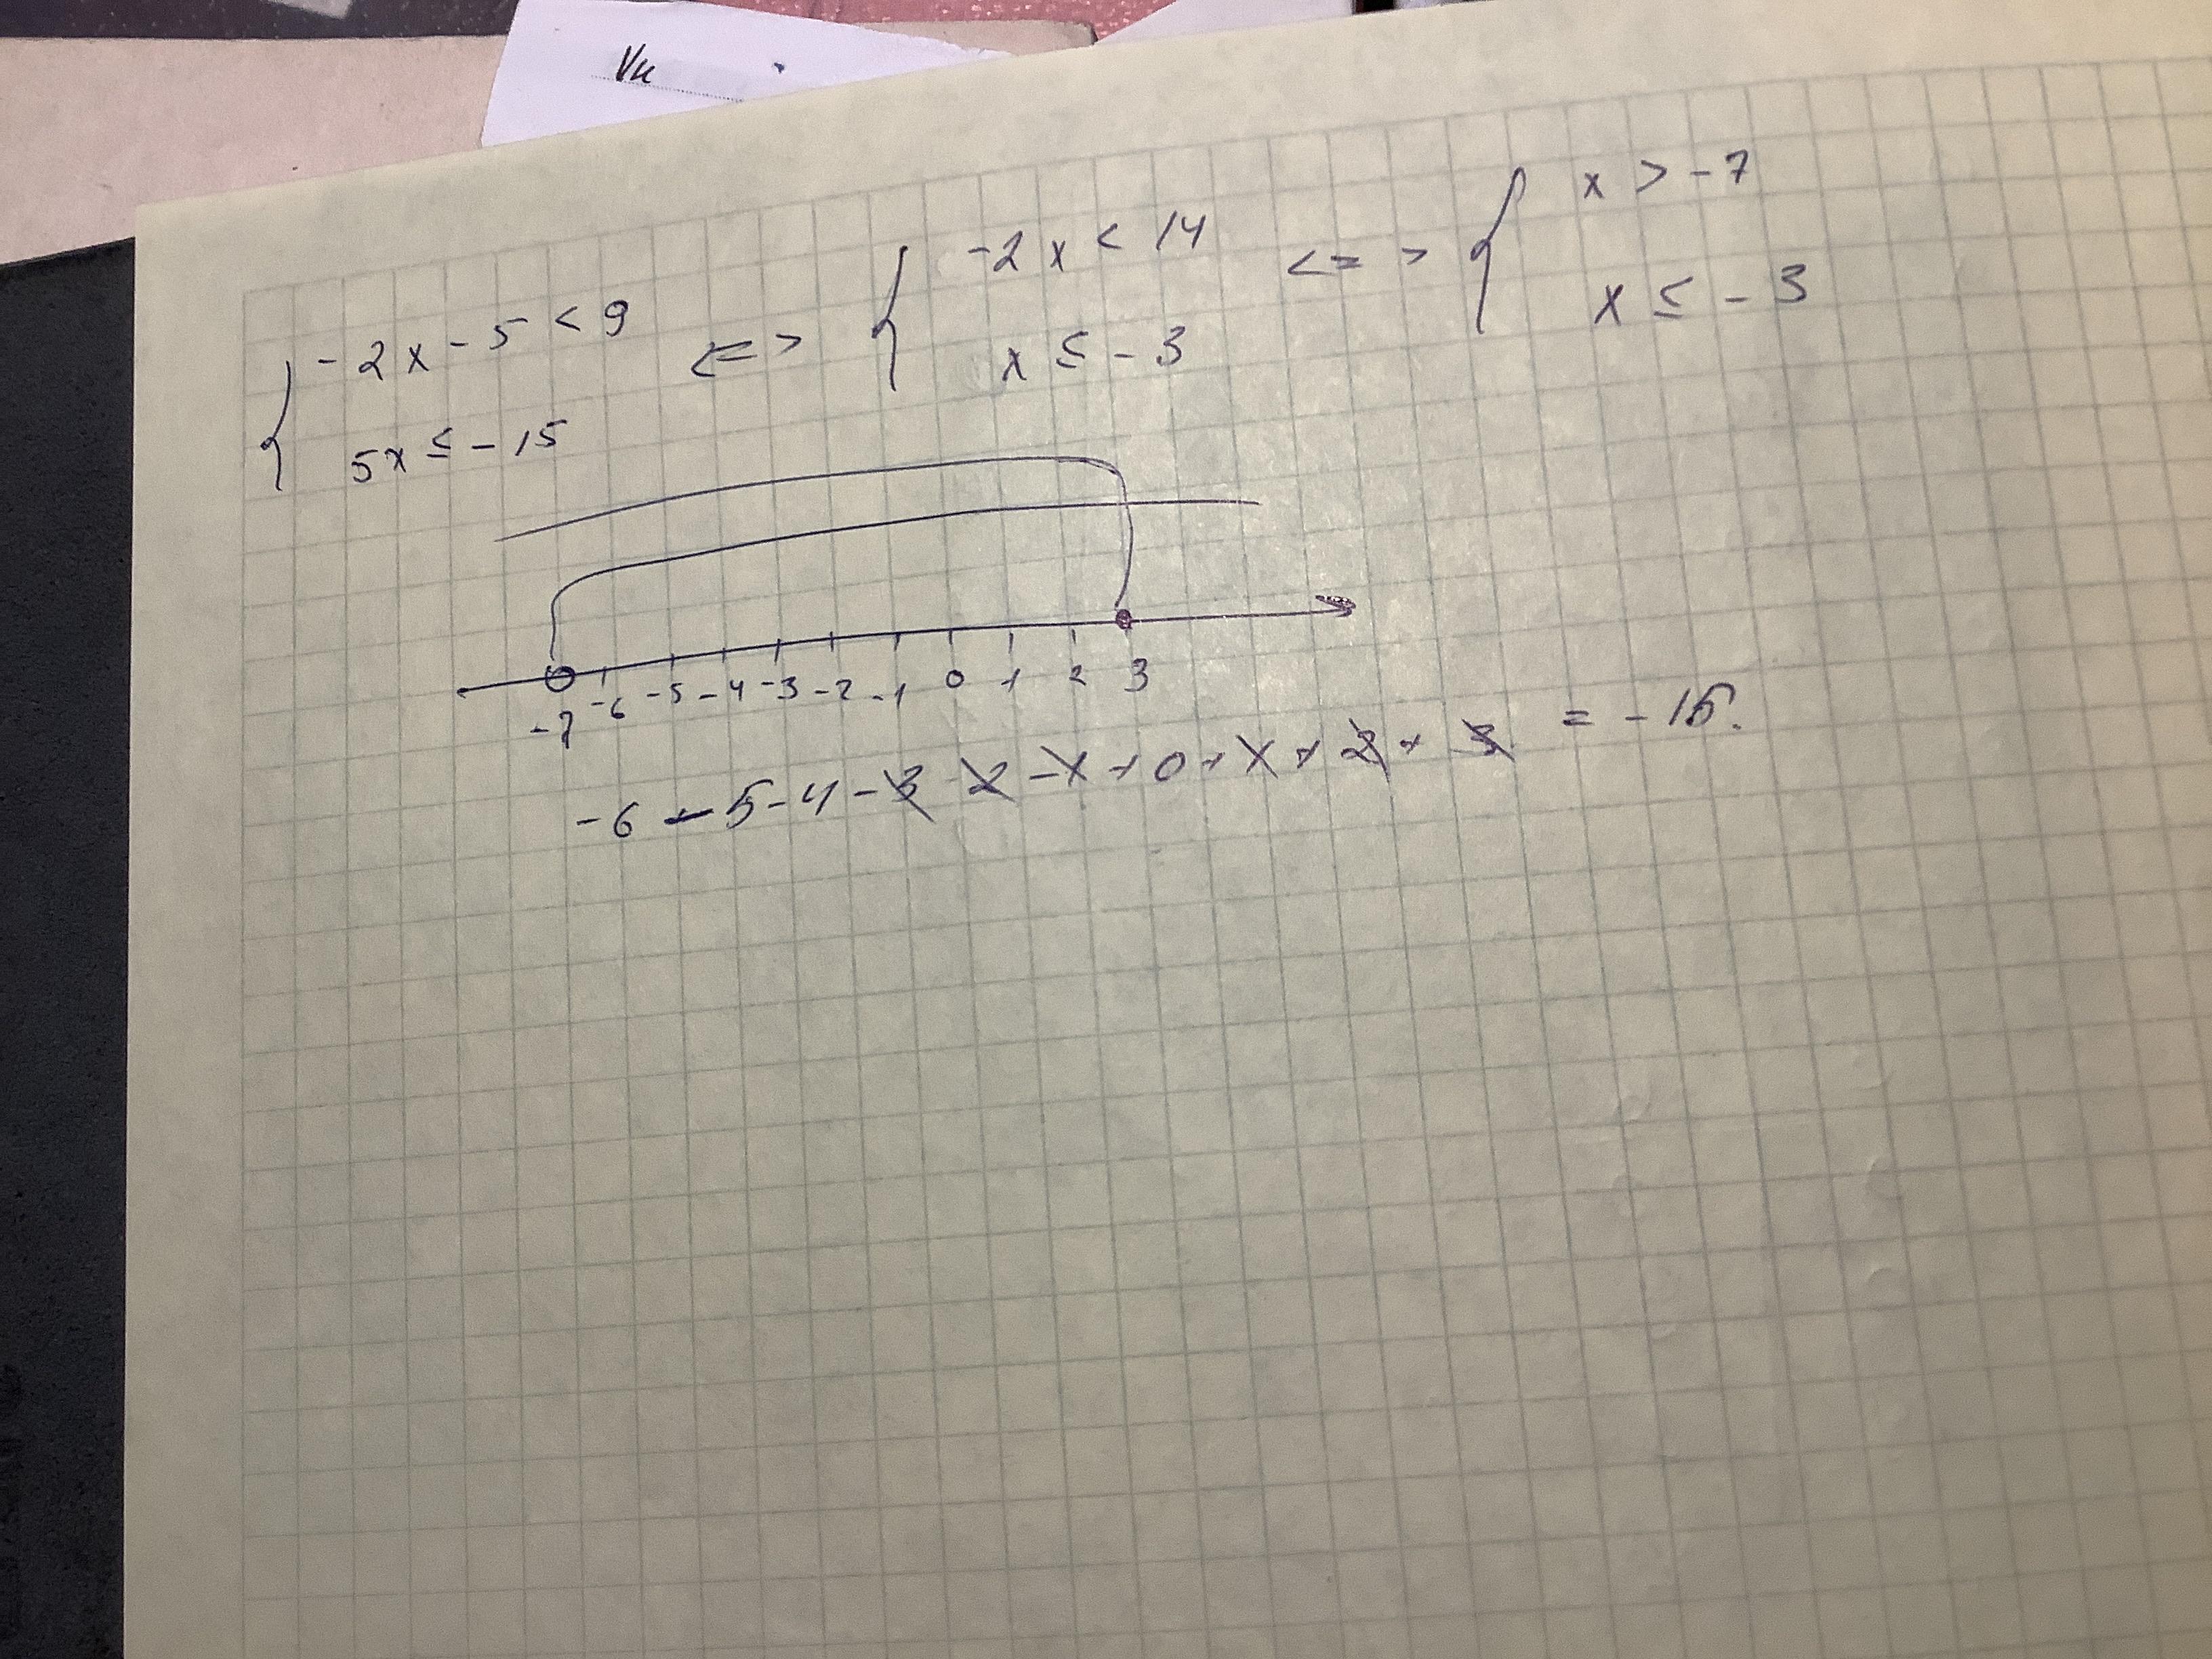 Vu
{ -2x - 5 < 9 <=> { -2x < 14 <=> { x > -7
5x ≤ -15 x ≤ -3 x ≤ -3
-7 -6 -5 -4 -3 -2 -1 0 1 2 3
-6 - 5 - 4 - 3 2 - 1 + 0 + 1 + 2 + 3 = -15.